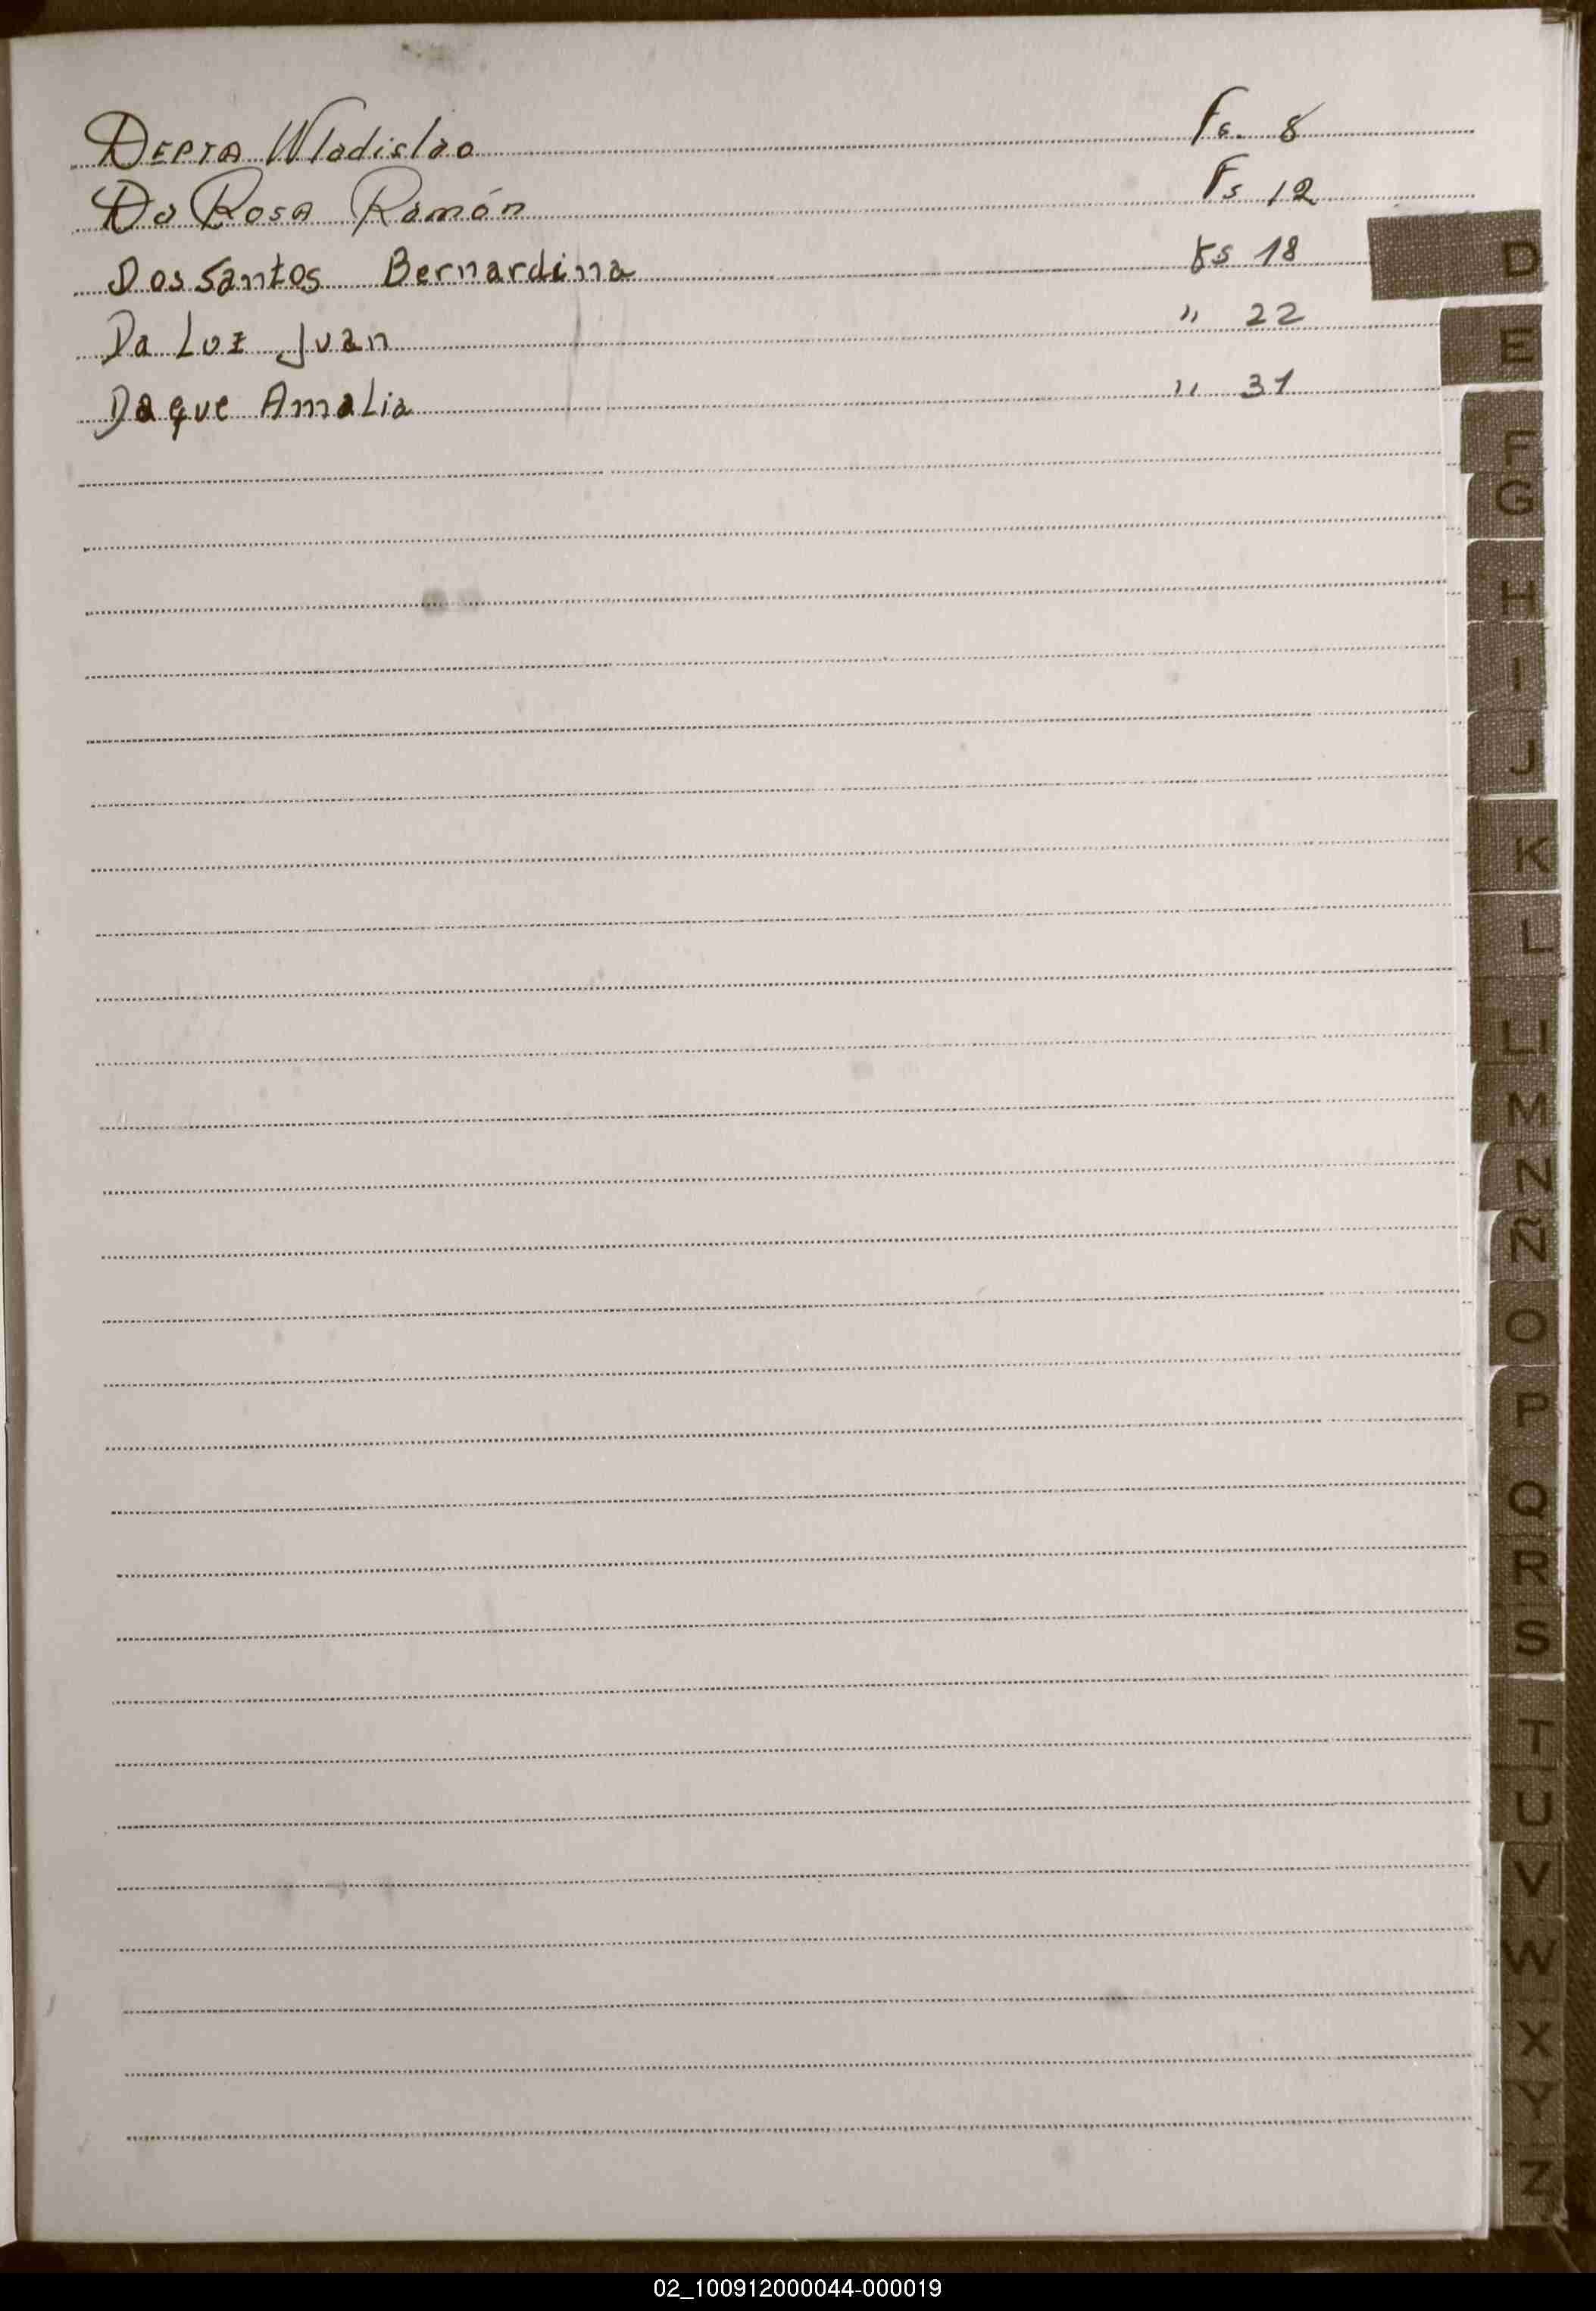 DEPTA Wladislao Fs. 8
Da ROSA Ramón Fs 12
Dos Santos Bernardina Fs 18
Da Luz Juan " 22
Daque Amalia " 31
D
E
F
G
H
I
J
K
L
LL
M
N
Ñ
O
P
Q
R
S
T
U
V
W
X
Y
Z
02_100912000044-000019